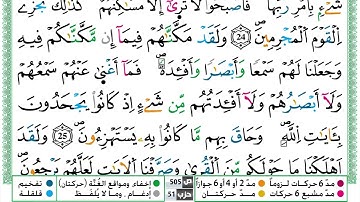 شَىْءٍۭ بِأَمْرِ رَبِّهَا فَأَصْبَحُوا۟ لَا تَرَىٰٓ إِلَّا مَسَٰكِنَهُمْ كَذَٰلِكَ نَجْزِى
ٱلْقَوْمَ ٱلْمُجْرِمِينَ 24 وَلَقَدْ مَكَّنَّٰهُمْ فِيمَآ إِن مَّكَّنَّٰكُمْ فِيهِ
وَجَعَلْنَا لَهُمْ سَمْعًا وَأَبْصَٰرًا وَأَفْـِٔدَةً فَمَآ أَغْنَىٰ عَنْهُمْ سَمْعُهُمْ
وَلَآ أَبْصَٰرُهُمْ وَلَآ أَفْـِٔدَتُهُم مِّن شَىْءٍ إِذْ كَانُوا۟ يَجْحَدُونَ
بِـَٔايَٰتِ ٱللَّهِ وَحَاقَ بِهِم مَّا كَانُوا۟ بِهِۦ يَسْتَهْزِءُونَ 25 وَلَقَدْ
أَهْلَكْنَا مَا حَوْلَكُم مِّنَ ٱلْقُرَىٰ وَصَرَّفْنَا ٱلْـَٔايَٰتِ لَعَلَّهُمْ يَرْجِعُونَ
مدّ 6 حركات لزوماً مدّ 2 أو 4 أو 6 جوازاً ص 505 إخفاء، ومواقع الغُنَّة (حركتان) تفخيم
مدّ مشبع 6 حركات مدّ حركتان حزب 51 إدغام، وما لا يُلفَظ قلقلة